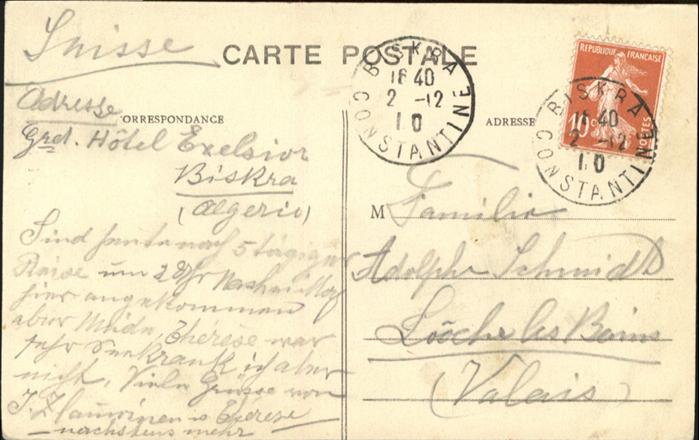 Suisse
CARTE POSTALE
Adresse
CORRESPONDANCE
Grd. Hôtel Exelsior
Biskra
(Algerie)
Sind heute nach 5 tägiger
Reise um 2 Uhr Nachmittag
hier angekommen
aber müde, Therese war
sehr Seekrank ich aber
nicht, Viele Grüsse von
& Therese
nächstens mehr
BISKRA
16 40
2 -12
10
CONSTANTINE
ADRESSE
REPUBLIQUE FRANÇAISE
10c
POSTES
BISKRA
16 40
2 -12
10
CONSTANTINE
M Familie
Adolphe Schmidt
Lööche les Bains
(Valais)